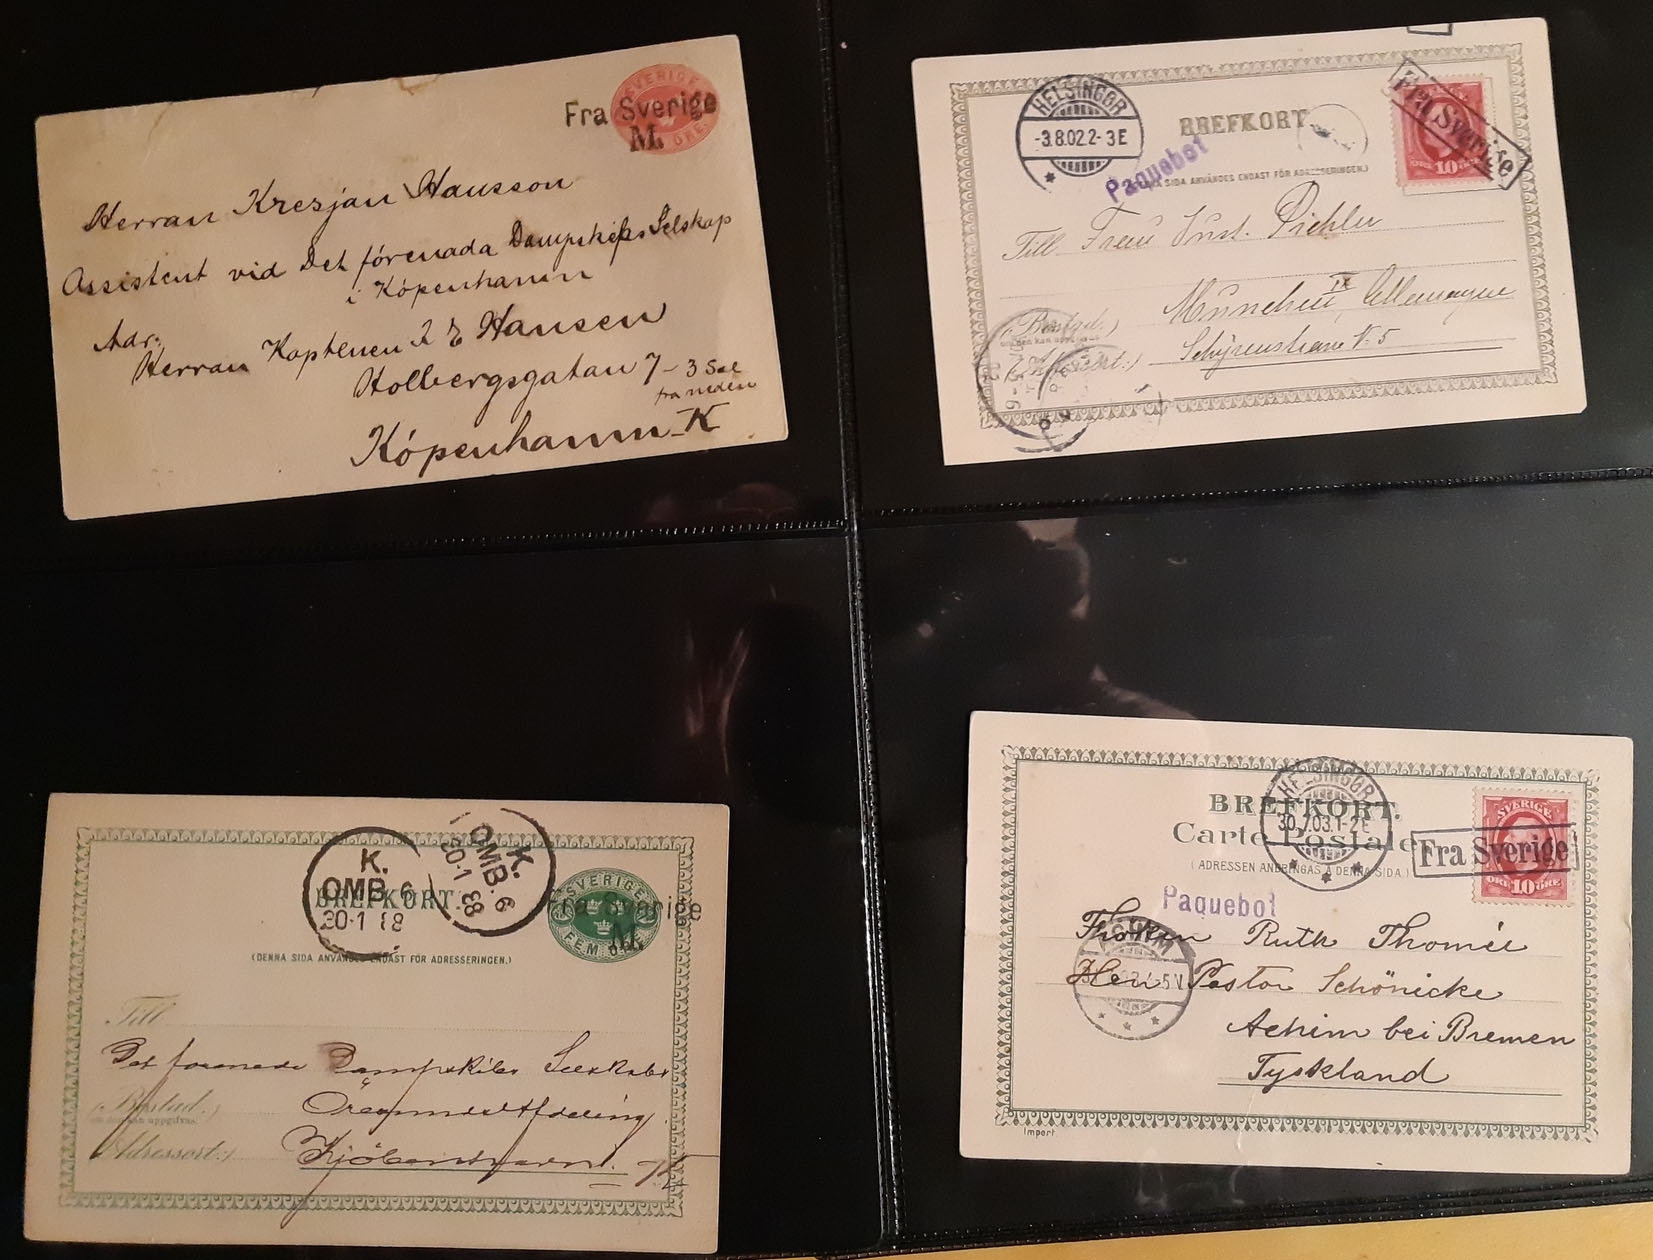 SVERIGE
Fra Sverige
M.
ÖRE
Herran Kresjan Hansson
Assistent vid Det förenada Dampskibs Selskap
i Köpenhamn
Adr.
Herran Kaptenen I E Hansen
Holbergsgatan 7 - 3 Sal
Köpenhamn K
HELSINGØR
-3.8.02.2-3E
BREFKORT
Paquebot
SIDA ANVÄNDES ENDAST FÖR ADRESSERINGEN.)
Fra Sverige
10
Till Frau Just. Pichler
München IX Allemagne
(Bostad.)
K.
OMB. 6
30-1 88
K.
OMB. 6
30-1 88
BREFKORT.
SVERIGE
Fra Sverige
M.
FEM ÖRE
(DENNA SIDA ANVÄNDES ENDAST FÖR ADRESSERINGEN.)
Till
Det forenede Dampskibs Selskabs
(Bostad.)
Adressort:)
Kjöbenhavn. K
HELSINGØR
30.7.03.1-2E
BREFKORT.
Carte Postale
(ADRESSEN ANBRINGAS Å DENNA SIDA.)
SVERIGE
Fra Sverige
ÖRE 10 ÖRE
Paquebot
Fröken Ruth Thomée
Herr Pastor Schönicke
Achim bei Bremen
Tyskland
Import